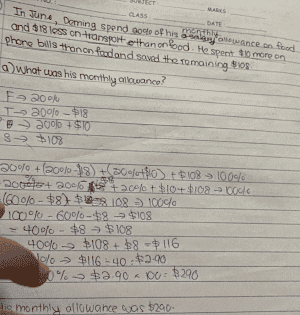 SUBJECT
MARKS
CLASS
DATE
In June, Deming spend 20% of his monthly allowance on food
and $18 less on transport than on food. He spent $10 more on
phone bills than on food and saved the remaining $108.
a) What was his monthly allowance?
F → 20%
T → 20% - $18
B → 20% + $10
S → $108
20% + (20% - $18) + (20% + $10) + $108 → 100%
20% + 20% + 20% + $10 + $108 → 100%
(60% - $8) 108 → 100%
100% - 60% - $8 → $108
= 40% - $8 → $108
40% → $108 + $8 = $116
% → $116 ÷ 40 = $2.90
0% → $2.90 × 100 = $290
His monthly allowance was $290.